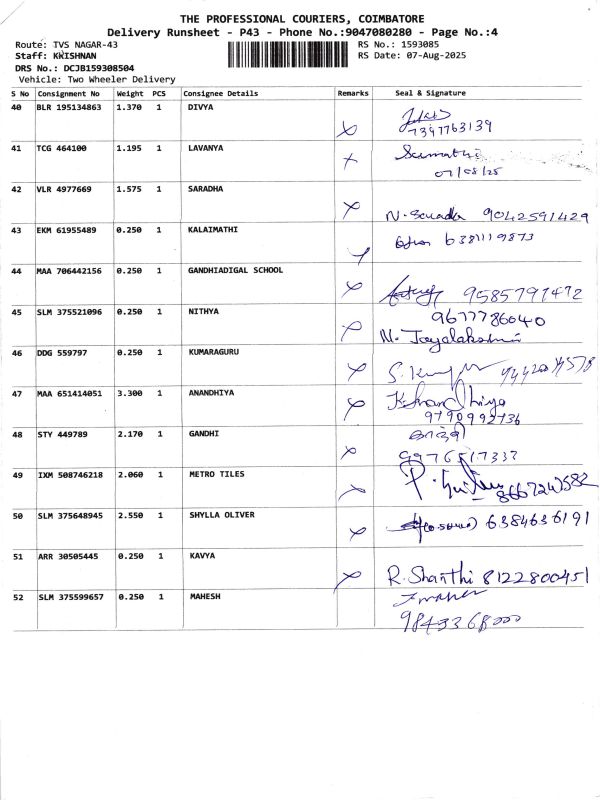 THE PROFESSIONAL COURIERS, COIMBATORE
Delivery Runsheet - P43 - Phone No.:9047080280 - Page No.:4
Route: TVS NAGAR-43 RS No.: 1593085
Staff: KRISHNAN RS Date: 07-Aug-2025
DRS No.: DCJB159308504
Vehicle: Two Wheeler Delivery
S No Consignment No Weight PCS Consignee Details Remarks Seal & Signature
40 BLR 195134863 1.370 1 DIVYA
7397763139
41 TCG 464100 1.195 1 LAVANYA Sumathi
07/08/25
42 VLR 4977669 1.575 1 SARADHA
N. Sarada 9042591429
43 EKM 61955489 0.250 1 KALAIMATHI 6381119873
44 MAA 706442156 0.250 1 GANDHIADIGAL SCHOOL
9585797472
45 SLM 375521096 0.250 1 NITHYA 9677786040
N. Jayalakshmi
46 DDG 559797 0.250 1 KUMARAGURU
47 MAA 651414051 3.300 1 ANANDHIYA
9790992736
48 STY 449789 2.170 1 GANDHI காந்தி
9976517337
49 IXM 508746218 2.060 1 METRO TILES
8667247582
50 SLM 375648945 2.550 1 SHYLLA OLIVER 6384636191
51 ARR 30505445 0.250 1 KAVYA
R. Shanthi 8122800451
52 SLM 375599657 0.250 1 MAHESH
9843368000